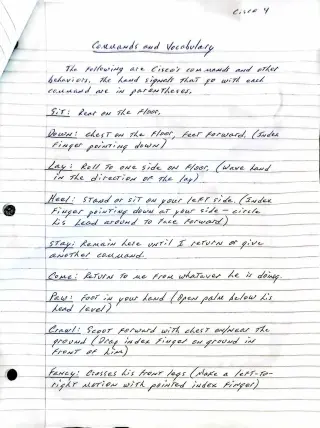 Cisco 4
Commands and Vocabulary
The following are Cisco's commands and other
behaviors. The hand signals that go with each
command are in parentheses.
Sit: Rear on the floor.
Down: Chest on the floor, feet forward. (Index
finger pointing down)
Lay: Roll to one side on floor, (Wave hand
in the direction of the lay)
Heel: Stand or sit on your left side. (Index
finger pointing down at your side - circle
his lead around to face forward)
Stay: Remain here until I return or give
another command.
Come: Return to me from whatever he is doing.
Paw: Foot in your hand (Open palm below his
head level)
Crawl: Scoot forward with chest on/near the
ground (Drag index finger on ground in
front of him)
Fancy: Crosses his front legs (Make a left-to-
right motion with pointed index finger)